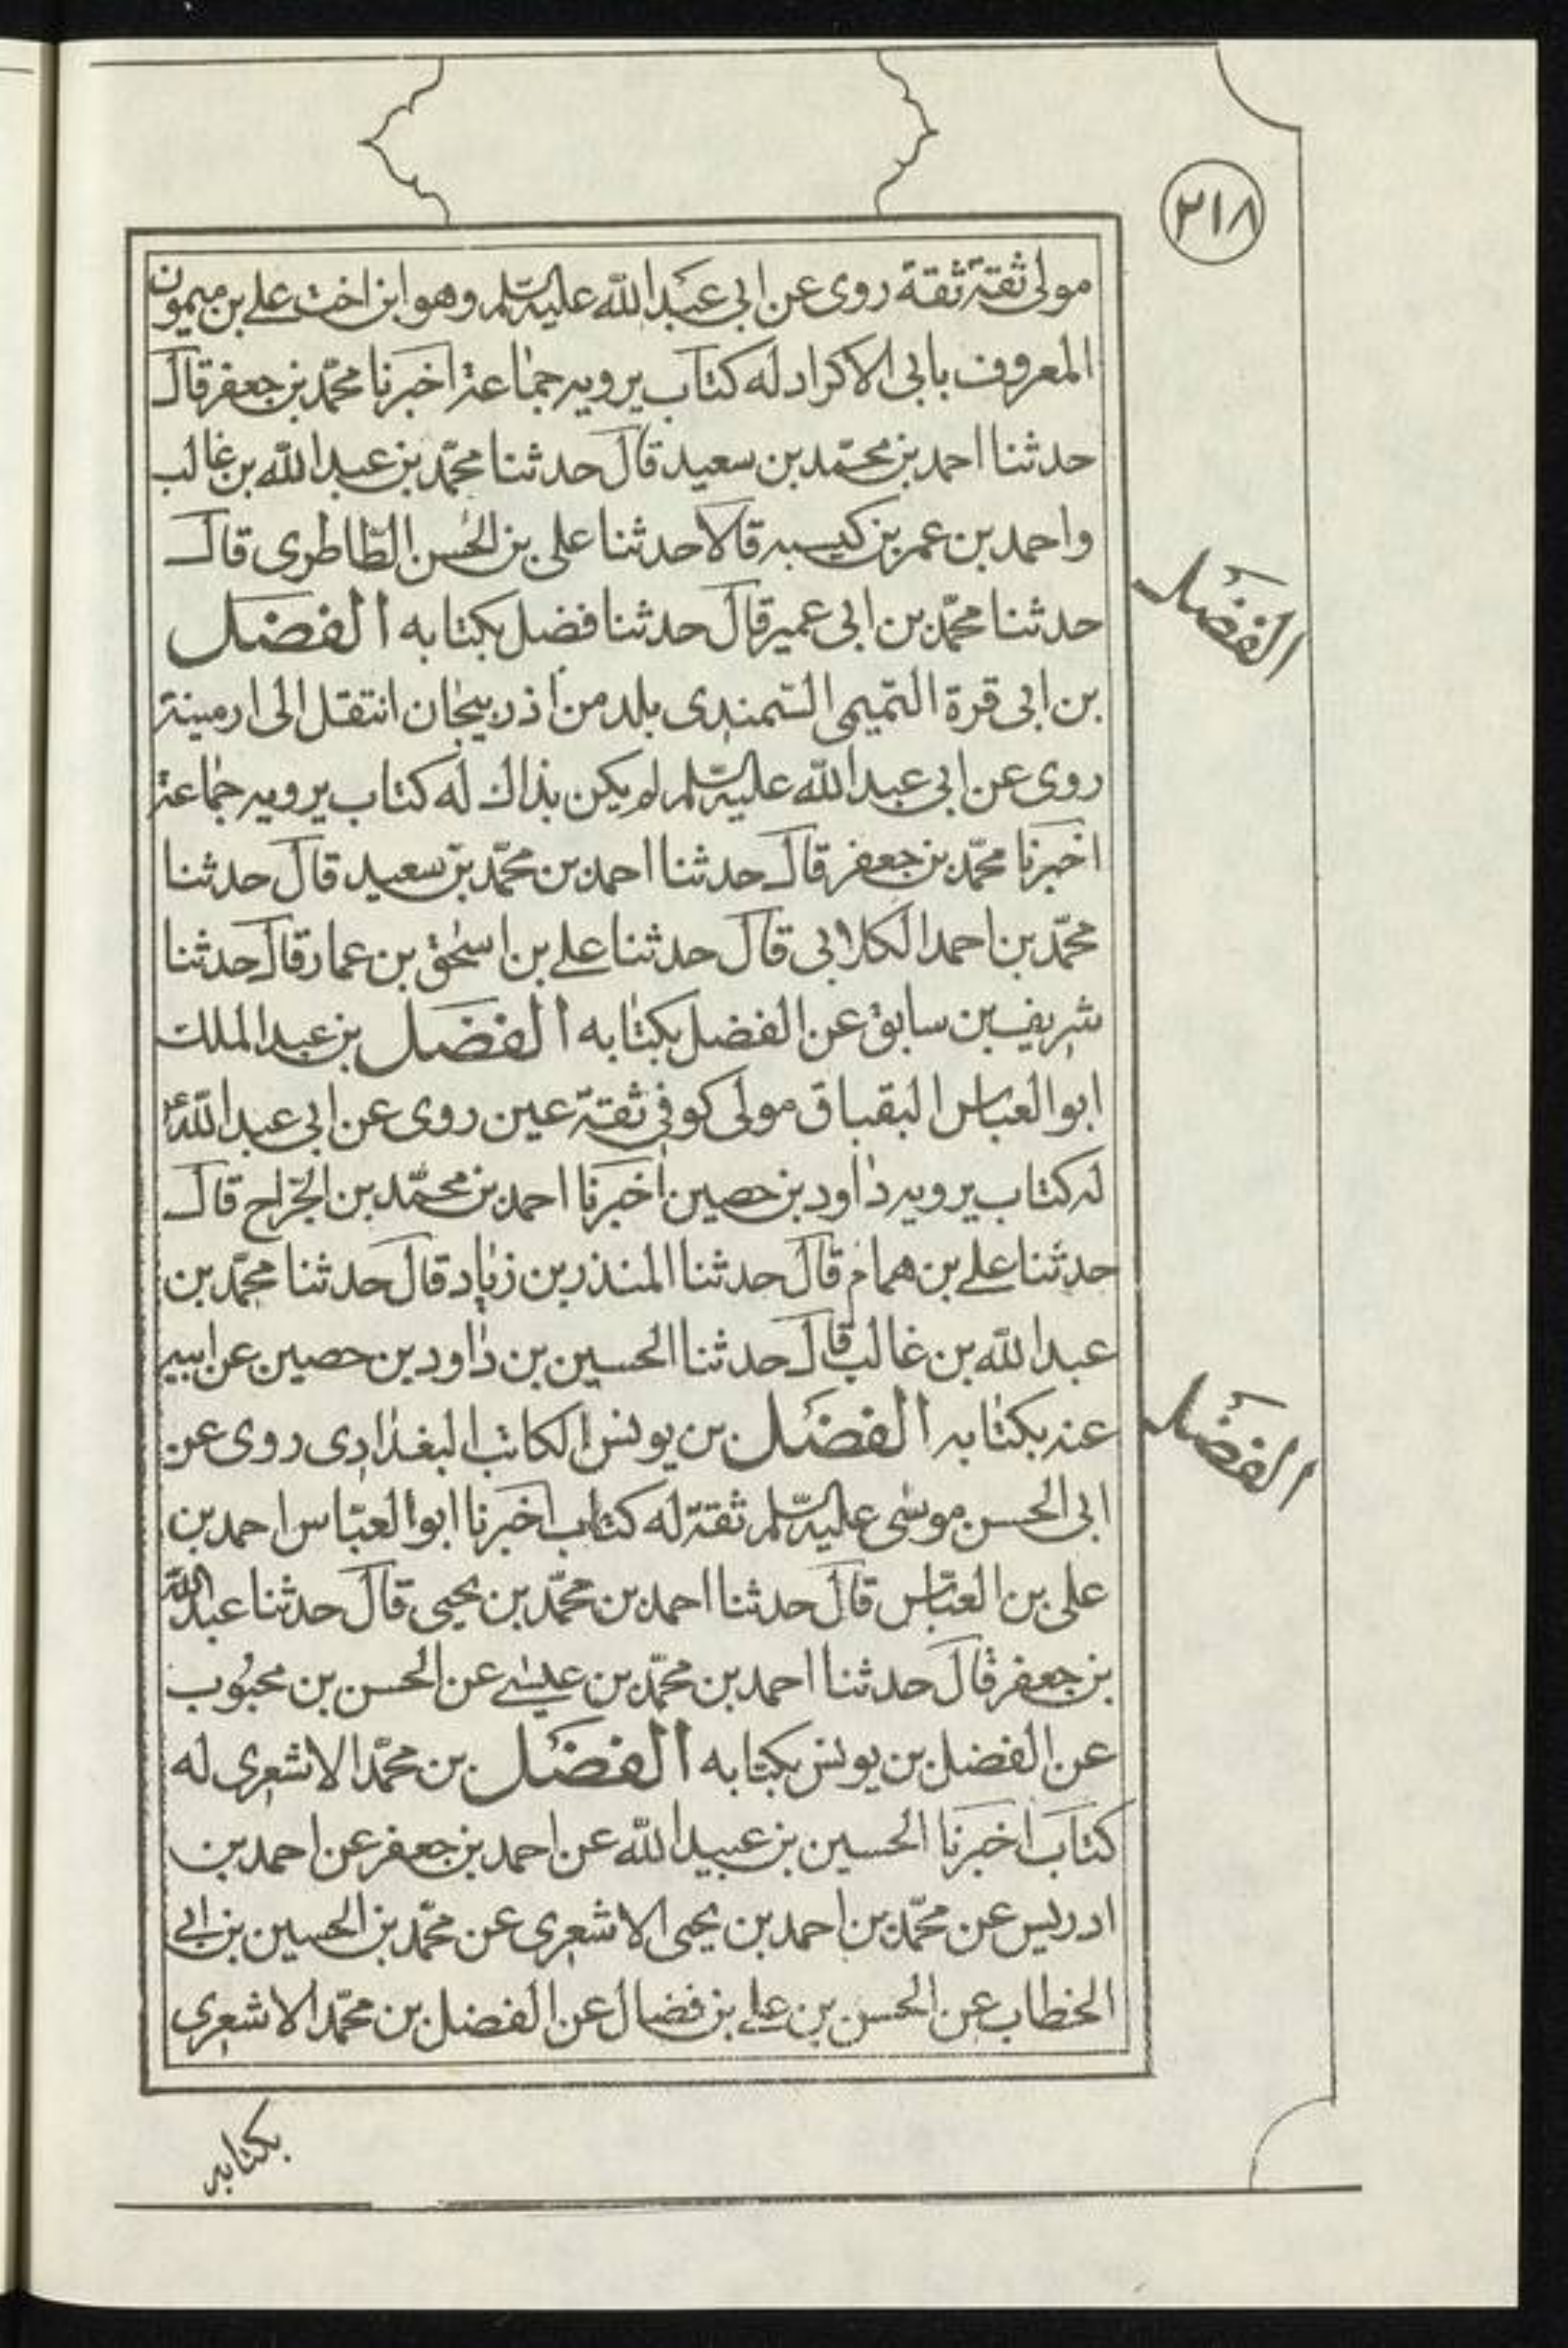 ٢١٨
مولى ثقة ثقة روى عن ابى عبد الله عليه السلم وهو ابن اخت على بن ميمون
المعروف بابى الاكراد له كتاب يرويه جماعة اخبرنا محمد بن جعفر قال
حدثنا احمد بن محمد بن سعيد قال حدثنا محمد بن عبد الله بن غالب
واحمد بن عمر بن كيسبه قالا حدثنا على بن الحسن الطاطرى قال
حدثنا محمد بن ابى عمير قال حدثنا فضيل بكتابه الفضل
الفضل
بن ابى قرة التميمى السمندى بلد من اذربيجان انتقل الى ارمينة
روى عن ابى عبد الله عليه السلم لم يكن بذاك له كتاب يرويه جماعة
اخبرنا محمد بن جعفر قال حدثنا احمد بن محمد بن سعيد قال حدثنا
محمد بن احمد الكلابى قال حدثنا على بن اسحق بن عمار قال حدثنا
شريف بن سابق عن الفضل بكتابه الفضل بن عبد الملك
ابو العباس البقباق مولى كوفى ثقة عين روى عن ابى عبد الله ع
له كتاب يرويه داود بن حصين اخبرنا احمد بن محمد بن الجراح قال
حدثنا على بن همام قال حدثنا المنذر بن زياد قال حدثنا محمد بن
عبد الله بن غالب قال حدثنا الحسين بن داود بن حصين عن ابيه
عنه بكتابه الفضل بن يونس الكاتب البغدادى روى عن
الفضل
ابى الحسن موسى عليه السلم ثقة له كتاب اخبرنا ابو العباس احمد بن
على بن العباس قال حدثنا احمد بن محمد بن يحيى قال حدثنا عبد الله
بن جعفر قال حدثنا احمد بن محمد بن عيسى عن الحسن بن محبوب
عن الفضل بن يونس بكتابه الفضل بن محمد الاشعرى له
كتاب اخبرنا الحسين بن عبيد الله عن احمد بن جعفر عن احمد بن
ادريس عن محمد بن احمد بن يحيى الاشعرى عن محمد بن الحسين بن ابى
الخطاب عن الحسن بن على بن فضال عن الفضل بن محمد الاشعرى
بكتابه